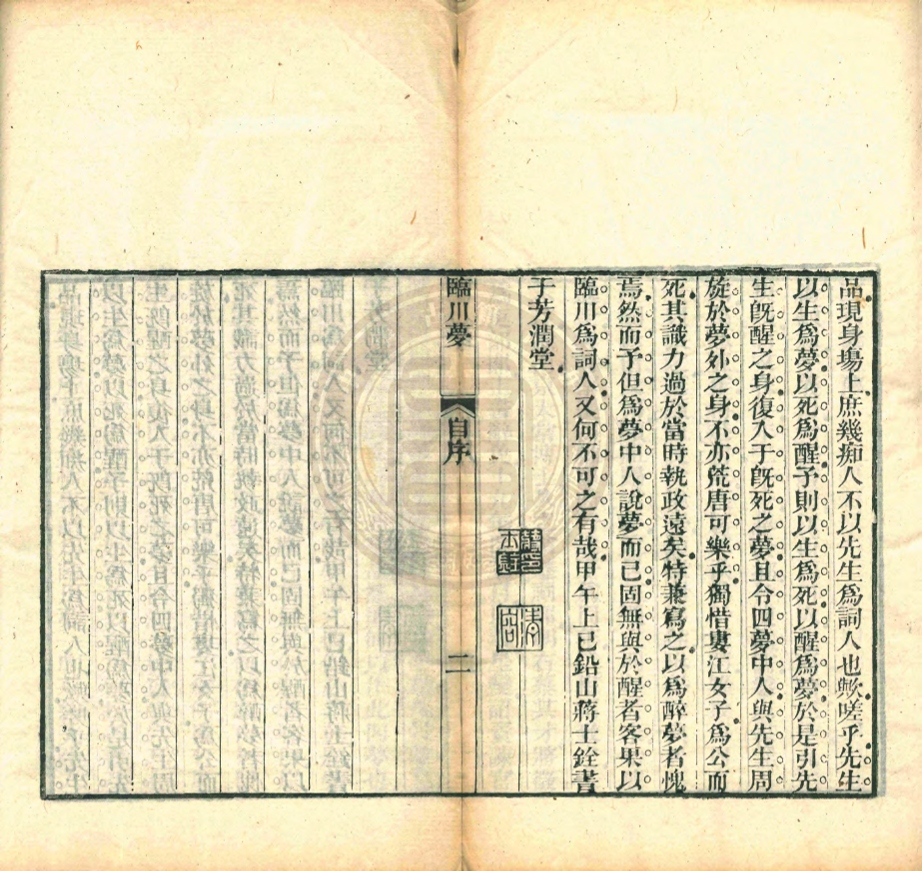 品現身塲上庶幾痴人不以先生爲詞人也歟嗟乎先生
以生爲夢以死爲醒予則以生爲死以醒爲夢於是引先
生旣醒之身復入于旣死之夢且令四夢中人與先生周
旋於夢外之身不亦荒唐可樂乎獨惜婁江女子爲公而
死其識力過於當時執政遠矣特兼寫之以爲醉夢者愧
焉然而予但爲夢中人說夢而已固無與於醒者客果以
臨川爲詞人又何不可之有哉甲午上巳鉛山蔣士銓書
于芳潤堂
臨川夢
自序
二